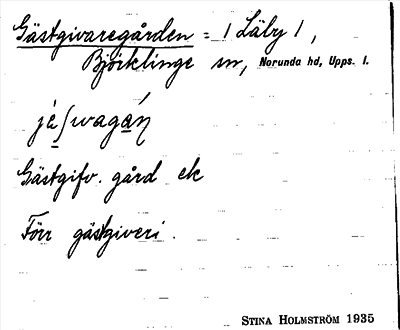 Gästgivaregården = / Läby /,
Björklinge sn, Norunda hd, Upps. l.
jäʃwagáṇ
Gästgifv. gård ek
Förr gästgiveri.
STINA HOLMSTRÖM 1935